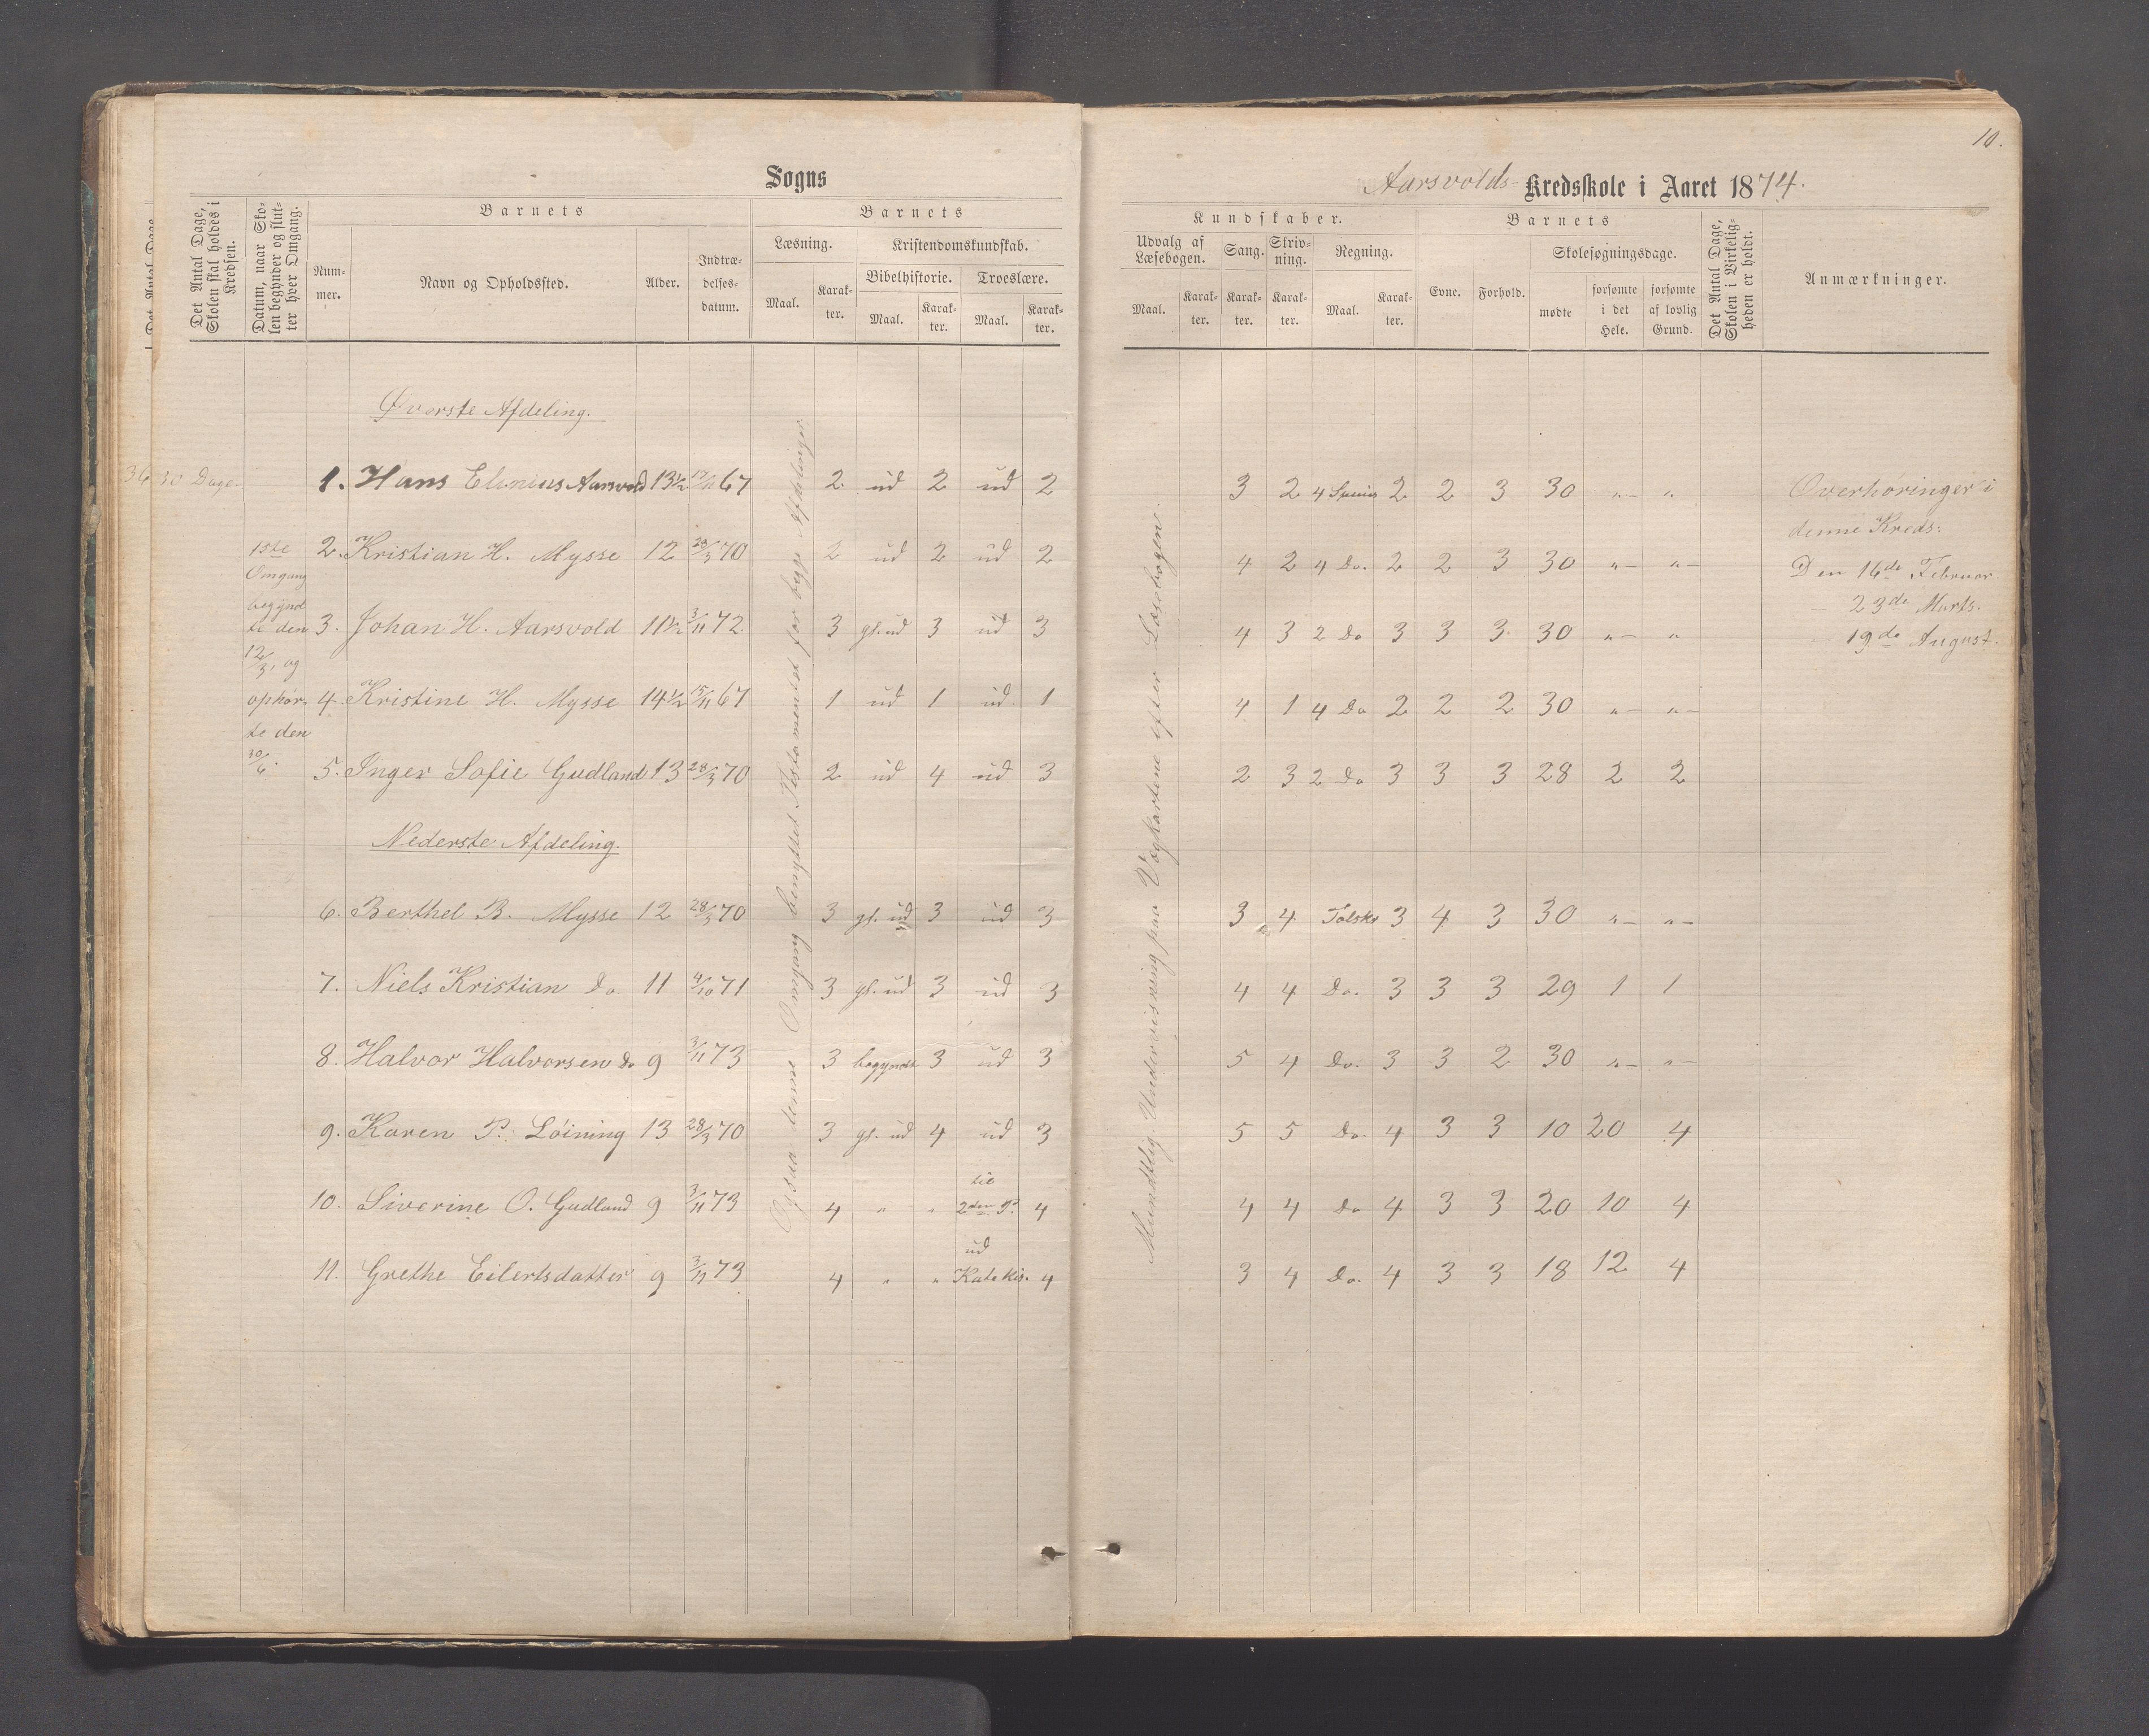 10.
Sogns
Aarsvolds Kredsskole i Aaret 1874.
Det Antal Dage, Skolen skal holdes i Kredsen.
Datum, naar Skolen begynder og slutter hver Omgang.
Barnets
Nummer.
Navn og Opholdssted.
Alder.
Indtrædelsesdatum.
Barnets
Læsning.
Maal.
Karakter.
Kristendomskundskab.
Bibelhistorie.
Maal.
Karakter.
Troeslære.
Maal.
Karakter.
Kundskaber.
Udvalg af Læsebogen.
Maal.
Karakter.
Sang.
Karakter.
Skrivning.
Karakter.
Regning.
Maal.
Karakter.
Barnets
Evne.
Forhold.
Skolesøgningsdage.
mødte
forsømte i det Hele.
forsømte af lovlig Grund.
Det Antal Dage, Skolen i Virkeligheden er holdt.
Anmærkninger.
Øverste Afdeling.
30 Dage.
1. Hans Elenius Aarsvold 13½ 17/11 67 2 ud 2 ud 2 3 2 4 2 2 3 30 " "
2. Kristian H. Mysse 12 28/3 70 2 ud 2 ud 2 4 2 4 Do. 2 2 3 30 " "
3. Johan H. Aarsvold 11½ 3/11 72 3 gl. ud 3 ud 3 4 3 2 Do 3 3 3 30 " "
4. Kristine H. Mysse 14½ 15/11 67 1 ud 1 ud 1 4 1 4 Do 2 2 2 30 " "
5. Inger Sofie Gudland 13 28/3 70 2 ud 4 ud 3 2 3 2 Do 3 3 3 28 2 2
1ste
Omgang
begynd
te den
12/3, og
ophør-
te den
30/6.
Overhøringer i
denne Kreds:
Den 16de Februar
- 23de Marts.
19de August.
Nederste Afdeling.
6. Berthel B. Mysse 12 28/3 70 3 gl. ud 3 ud 3 3 4 3 4 3 30 " "
7. Niels Kristian Do 11 4/10 71 3 gl. ud 3 ud 3 4 4 Do. 3 3 3 29 1 1
8. Halvor Halvorsen Do 9 3/11 73 3 begyndt 3 ud 3 5 4 Do. 3 3 2 30 " "
9. Karen P. Løining 13 28/3 70 3 gl. ud 4 ud 3 5 5 Do. 4 3 3 10 20 4
10. Siverine O. Gudland 9 3/11 73 4 " " til 2den P. 4 4 4 Do 4 3 3 20 10 4
11. Grethe Eilertsdatter 9 3/11 73 4 " " ud Katekis. 4 3 4 Do. 4 3 3 18 12 4
Ogsaa denne Omgang benyttet Testamentet for begge Afdelinger
Mundtlig Undervisning paa Vægkartene efter Læsebogene.